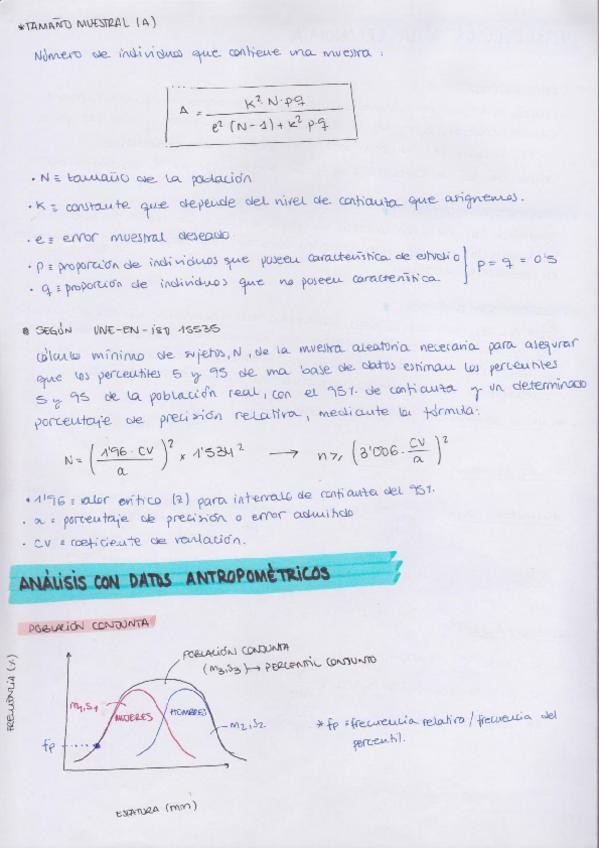 *TAMAÑO MUESTRAL (A)
Número de individuos que contiene una muestra:
A = k²·N·pq / e²(N-1)+k² p·q
· N ≡ tamaño de la población
· K ≡ constante que depende del nivel de confianza que asignemos.
· e ≡ error muestral deseado
· p ≡ proporción de individuos que poseen característica de estudio } p = q = 0'5
· q ≡ proporción de individuos que no poseen característica
SEGÚN UNE-EN-ISO 15535
Cálculo mínimo de sujetos, N, de la muestra aleatoria necesaria para asegurar
que los percentiles 5 y 95 de una base de datos estiman los percentiles
5 y 95 de la población real, con el 95% de confianza y un determinado
porcentaje de precisión relativa, mediante la fórmula:
N = (1'96 · CV / a)² × 1'534² → n ≥ (3'006 · CV / a)²
· 1'96 = valor crítico (z) para intervalo de confianza del 95%
· a = porcentaje de precisión o error admitido
· CV = coeficiente de variación.
ANÁLISIS CON DATOS ANTROPOMÉTRICOS
POBLACIÓN CONJUNTA
POBLACIÓN CONJUNTA
(m₃,s₃) → PERCENTIL CONJUNTO
FRECUENCIA (%)
m₁,s₁
MUJERES
HOMBRES
m₂,s₂
fp
* fp = frecuencia relativa / frecuencia del
percentil.
ESTATURA (mm)